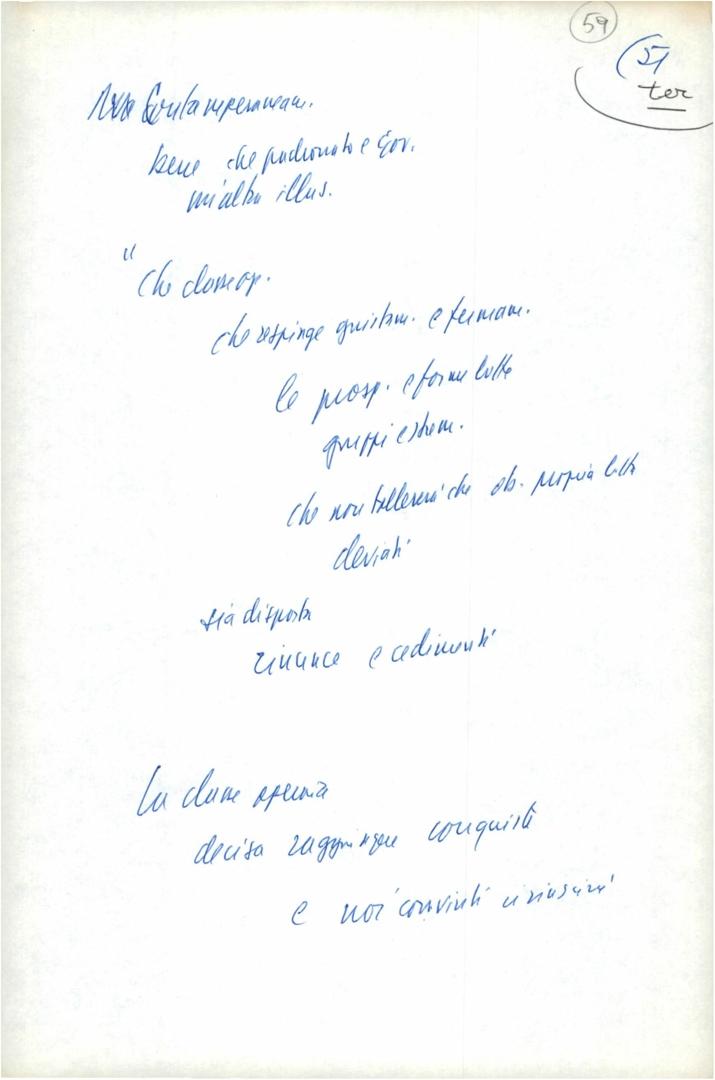 59
51
ter
Ma Contemporaneam.
bene che padronato e Gov.
un'altra illus.
"
che classe op.
che respinge giustam. e fermam.
le prosp. e forme lotte
gruppi estrem.
che non tollererà che ob. propria lotta
deviati
sia disposta
rinunce e cedimenti
La classe operaia
decisa raggiungere conquiste
e noi convinti ci riuscirà